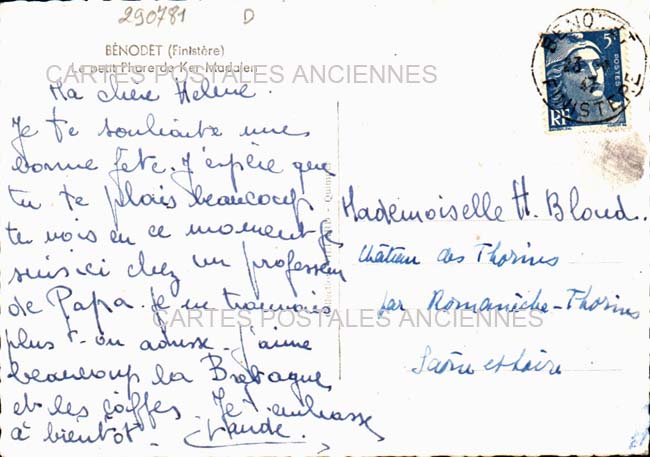 290781 D
BÉNODET (Finistère)
Le petit Phare de Ker Madalen
CARTES POSTALES ANCIENNES
Ma chère Hélène.
Je te souhaite une
bonne fête. J'espère que
tu te plais beaucoup
tu vois en ce moment je
suis ici chez un professeur
de Papa. Je ne trouvais
plus ton adresse. J'aime
beaucoup la Bretagne
et les coiffes. Je t'embrasse
à bientôt.
BENODET
FINISTERE
5F
POSTES
RF
Mademoiselle H. Blond.
Château des Thorins
par Romanèche-Thorins
Saône et Loire
CARTES POSTALES ANCIENNES